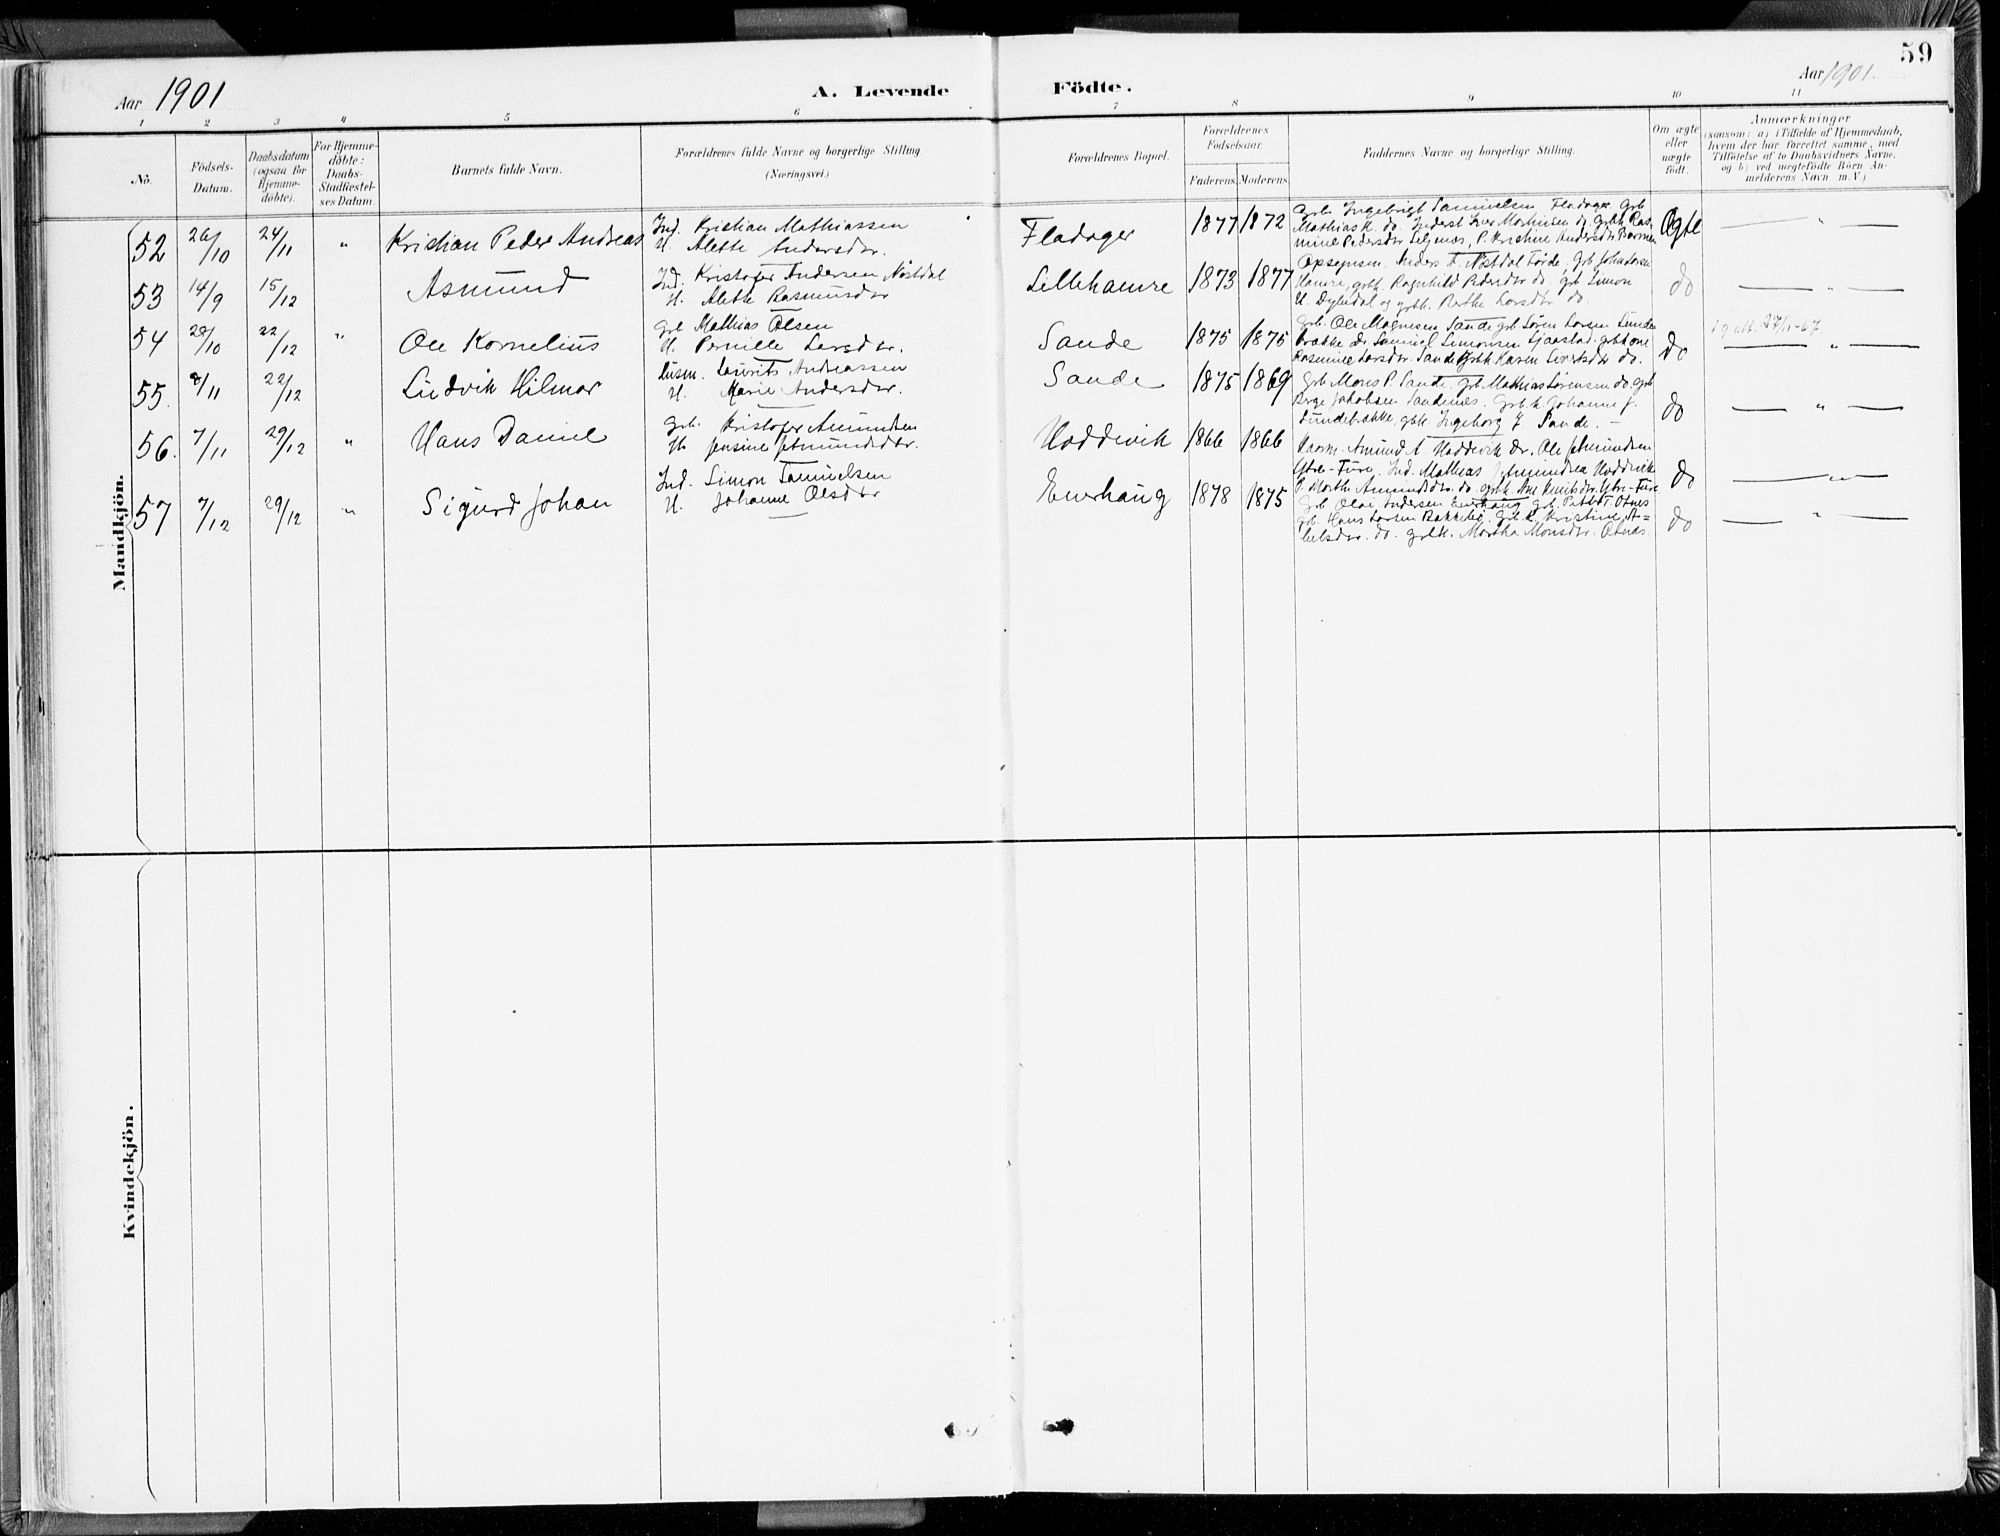 59
Aar 1901
A. Levende Födte.
Aar 1901.
1 2 3 4 5 6 7 8 9 10 11
No.
Födsels-
Datum.
Daabsdatum
(ogsaa for
Hjemme-
döbte).
For Hjemme-
döbte:
Daabs-
Stadfæstel-
ses Datum.
Barnets fulde Navn.
Forældrenes fulde Navne og borgerlige Stilling.
(Næringsvei.)
Forældrenes Bopæl.
Forældrenes
Födselsaar.
Faderens. Moderens.
Faddernes Navne og borgerlige Stilling.
Om ægte
eller
uægte
födt.
Anmærkninger
(saasom: a) i Tilfælde af Hjemmedaab,
hvem der har forrettet samme, med
Tilföielse af to Daabsvidners Navne,
og b) ved uægtefödte Börn An-
melderens Navn m. V.)
Mandkjön.
52 26/10 24/11 " Kristian Peder Andreas
Ind. Kristian Mathiassen
H. Alette Andersdtr.
Fladager 1877 1872
Grb. Ingebrigt Samuelsen Fladager grb
Mathias K. do. Inderst Iver
mine Pedersdtr Seljenes, P. Kristine Andersdtr Barmen
Ægte — " —
53 14/9 15/12 Asmund
Ind. Kristofer Andersen Nöstdal
H. Alette Rasmusdtr
Lillehamre 1873 1877
Opsynsm. Anders A. Nöstdal Förde, Grb Johan Larsen
Hamre, grbk. Ragnhild Pedersdtr do. grb Simon
H. Dyledal og grbk. Berthe Larsdtr do.
do — " —
54 20/10 22/12 " Ole Kornelius
Grb Mathias Olsen
H. Pernille Larsdtr.
Sande 1875 1875
Grb. Ole Magnesen Sande grb Sören Larsen Lunde
brække dr. Samuel Simonsen
Rasmine Larsdtr. Sande grbk Karen Sivertsdtr do.
do — " —
55. 8/11 22/12 Ludvik Hilmar
Husm. Laurits Andreassen
H. Marie Andersdtr.
Sande 1875 1869
Grb Mons P. Sande. grb Mathias Sörensen do. grb
Börge Jakobsen Sandenes. Grbk Johanne J.
Lundebrække, gbk. Ingeborg J Sande.
do — " —
56. 7/11 29/12 " Hans Daniel
Grb. Kristofer Amundsen
H. Jensine Jetmundsdtr.
Hoddevik 1866 1866
Kaarm. Amund A. Hoddevik Dr. Ole Jetmundsen
Ytre-Fure. Ind. Mathias Jetmundsen Hoddevik
P. Marthe Amundsdtr. do grbk Ane Knutsdtr. Ytre-Fure
do — " —
57 7/12 29/12 " Sigurd Johan
Ind. Simon Samuelsen
H. Johanne Olsdtr
Enerhaug 1878 1875
Grb. Olai Andersen Enerhaug grb. Peder T. Otnes
grb. Hans Larsen Bakkebö. Grbk. Kristine A=
belsdtr. do. grbk. Martha Monsdtr. Otnes.
do — " —
Kvindekjön.